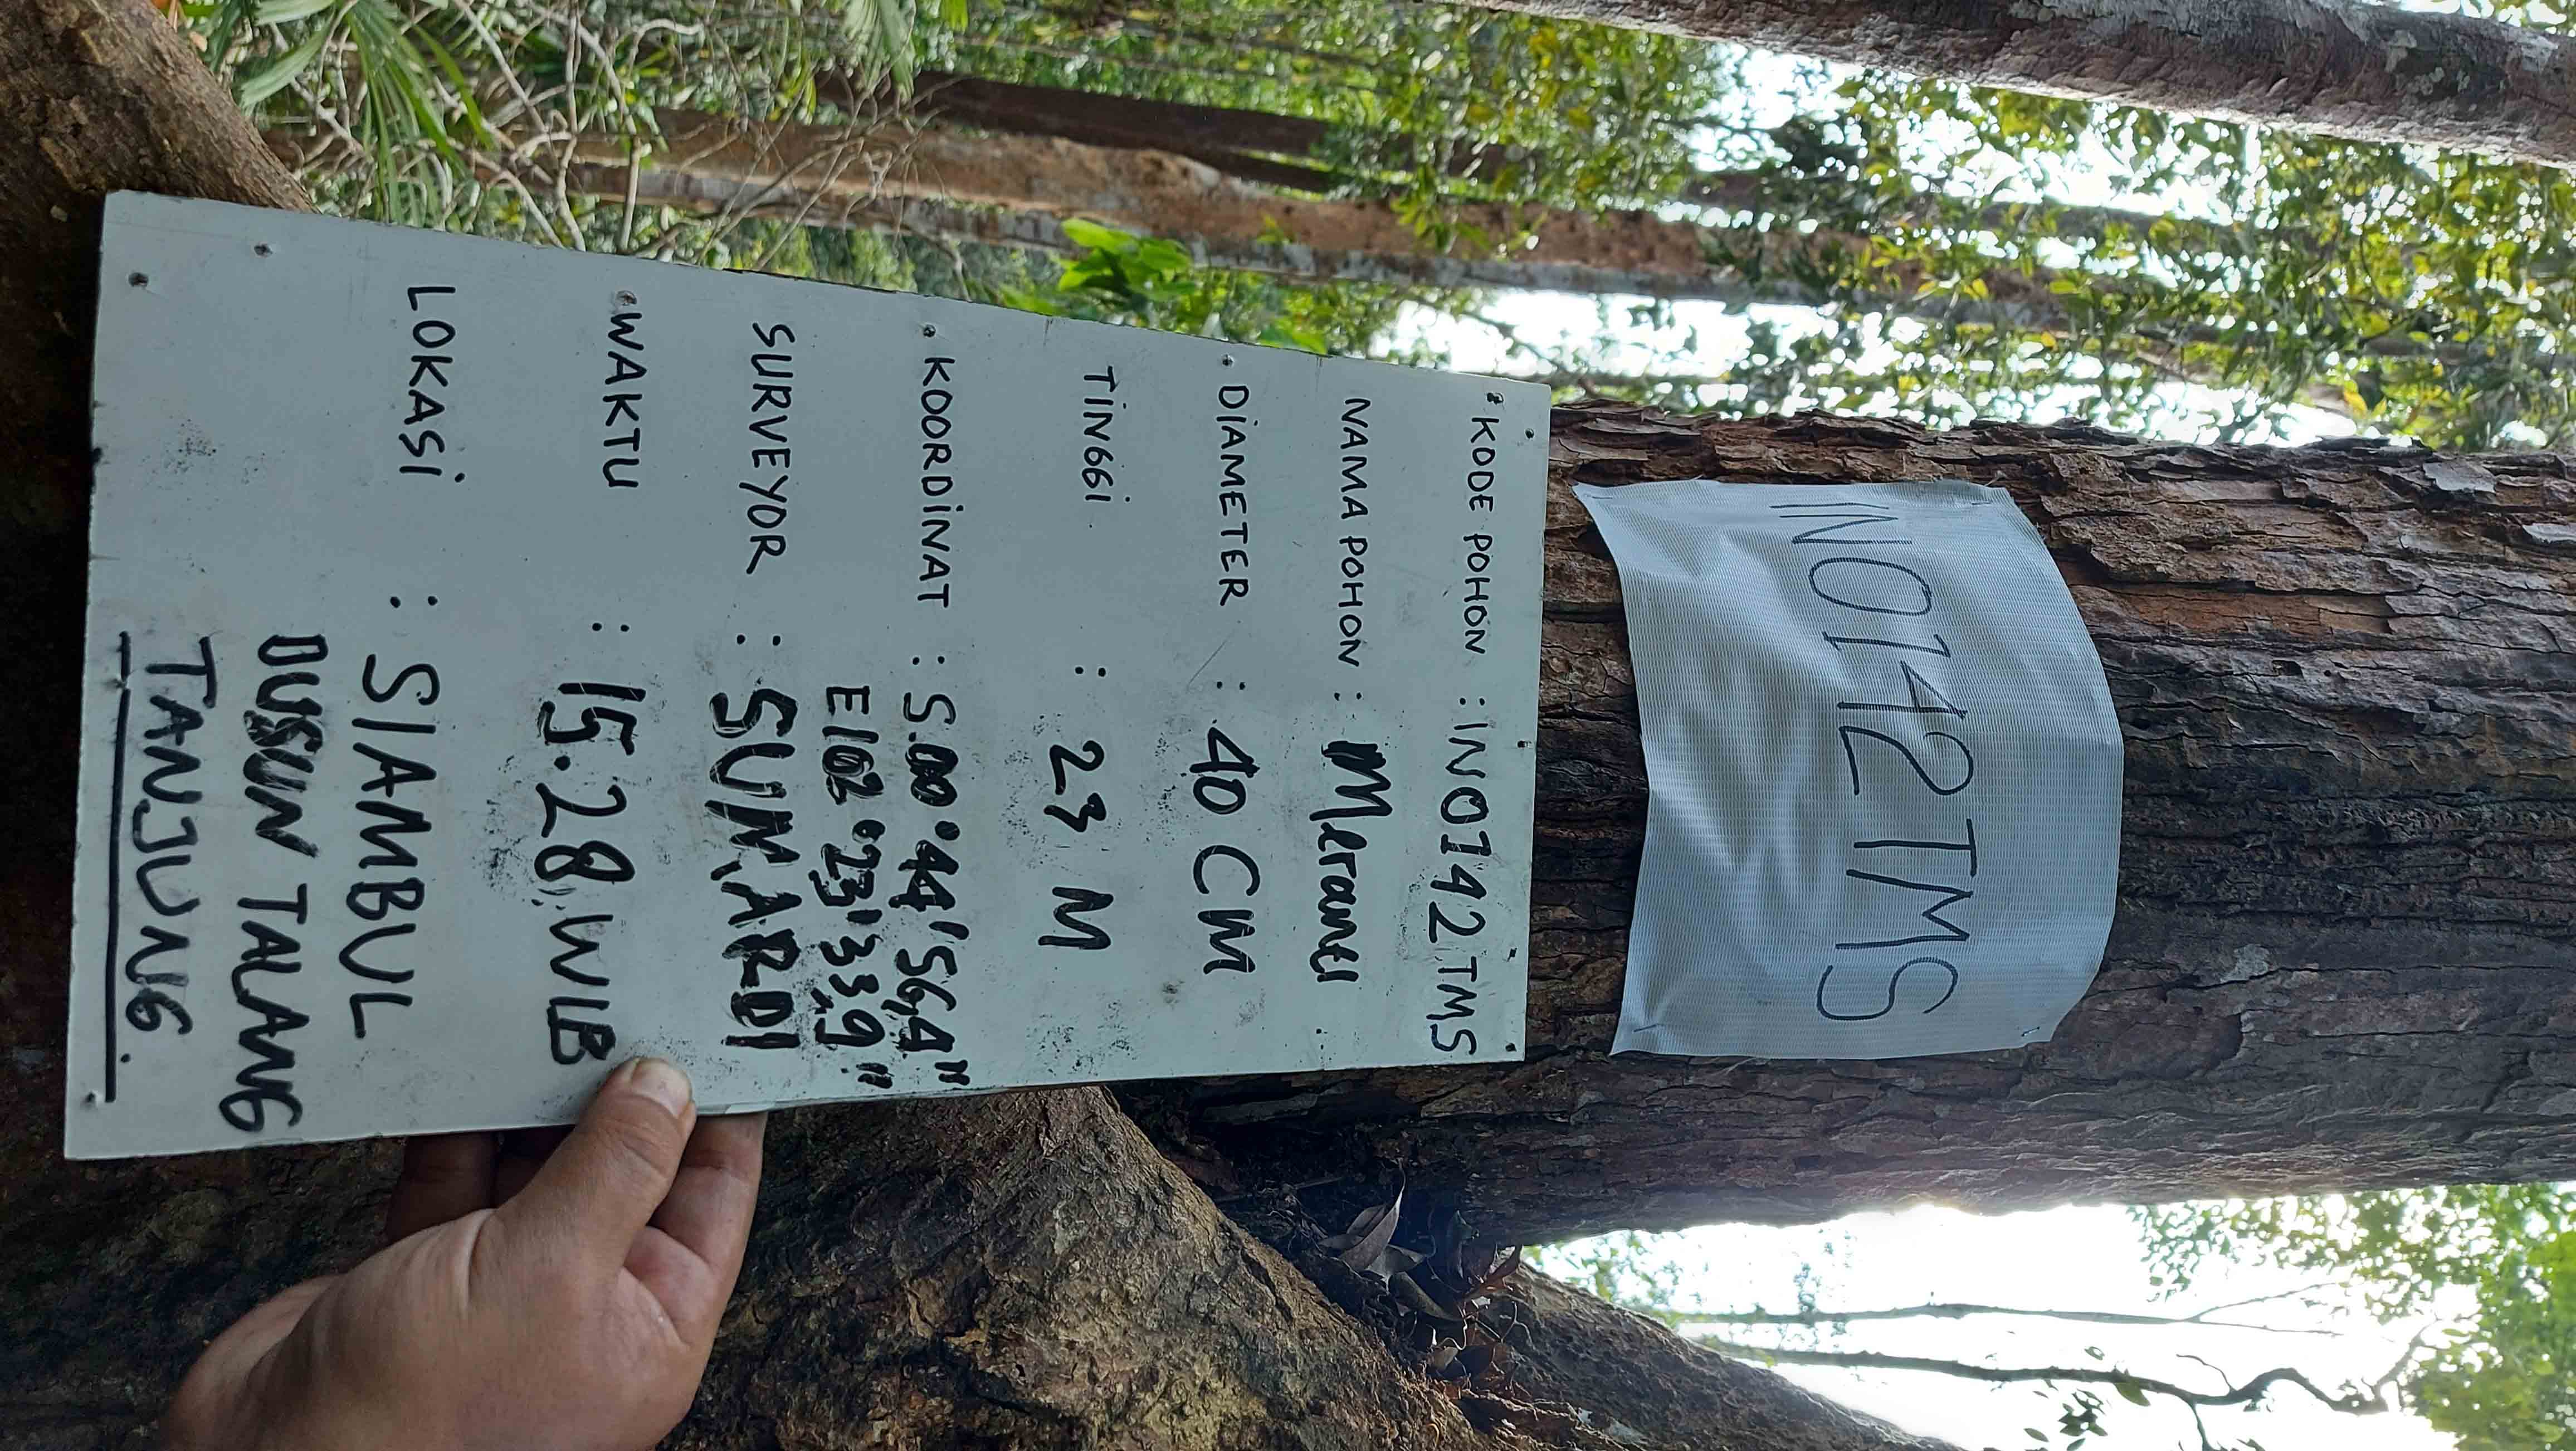 INO142TMS
KODE POHON : INO142TMS
NAMA POHON : Meranti
DIAMETER : 40 CM
TINGGI : 23 M
KOORDINAT : S.00°44'56,4"
E102°23'33,9"
SURVEYOR : SUMARDI
WAKTU : 15.28, WIB
LOKASI : SIAMBUL
DUSUN TALANG
TANJUNG.